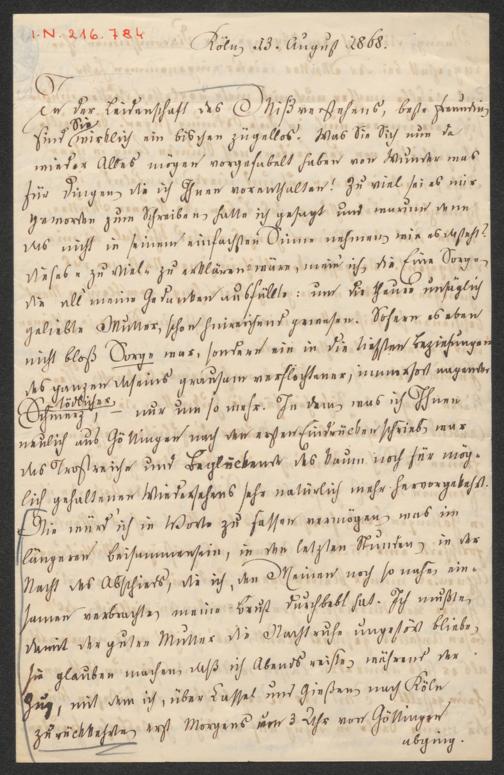 I.N. 216.784
Köln, 13. August 1868.
In der Leidenschaft des Mißverstehens, beste Freundin,
sind Sie wirklich ein bischen zügellos. Was Sie Sich nun da
wieder Alles mögen vorgefabelt haben von Wunder was
für Dingen, die ich Ihnen vorenthalten! Zu viel sei es mir
geworden zum Schreiben, hatte ich gesagt und warum denn
das nicht in seinem einfachsten Sinne nehmen, wie es dasteht?
dieses „zu viel“ zu erklären wäre, mein' ich, die Eine Sorge,
die all' meine Gedanken ausfüllte: um die theure unsäglich
geliebte Mutter, schon hinreichend gewesen. Sofern es eben
nicht bloß Sorge war, sondern ein in die tiefsten Beziehungen
des ganzen Daseins grausam verflochtener, immerfort nagender
tödlicher
Schmerz, nur um so mehr. In dem, was ich Ihnen
neulich aus Göttingen nach den ersten Eindrücken schrieb, war
das Trostreiche und Beglückende des kaum noch für mög-
lich gehaltenen Wiedersehens sehr natürlich mehr hervorgekehrt.
Nie würd' ich in Worte zu fassen vermögen, was im
längeren Beisammensein, in den letzten Stunden, in der
Nacht des Abschieds, die ich, den Meinen noch so nahe, ein-
sam verbrachte, meine Brust durchbebt hat. Ich mußte,
damit der guten Mutter die Nachtruhe ungestört bliebe,
sie glauben machen, daß ich Abends reiste, während der
Zug, mit dem ich, über Cassel und Gießen, nach Köln
zurückkehrte, erst Morgens um 3 Uhr von Göttingen
abging.